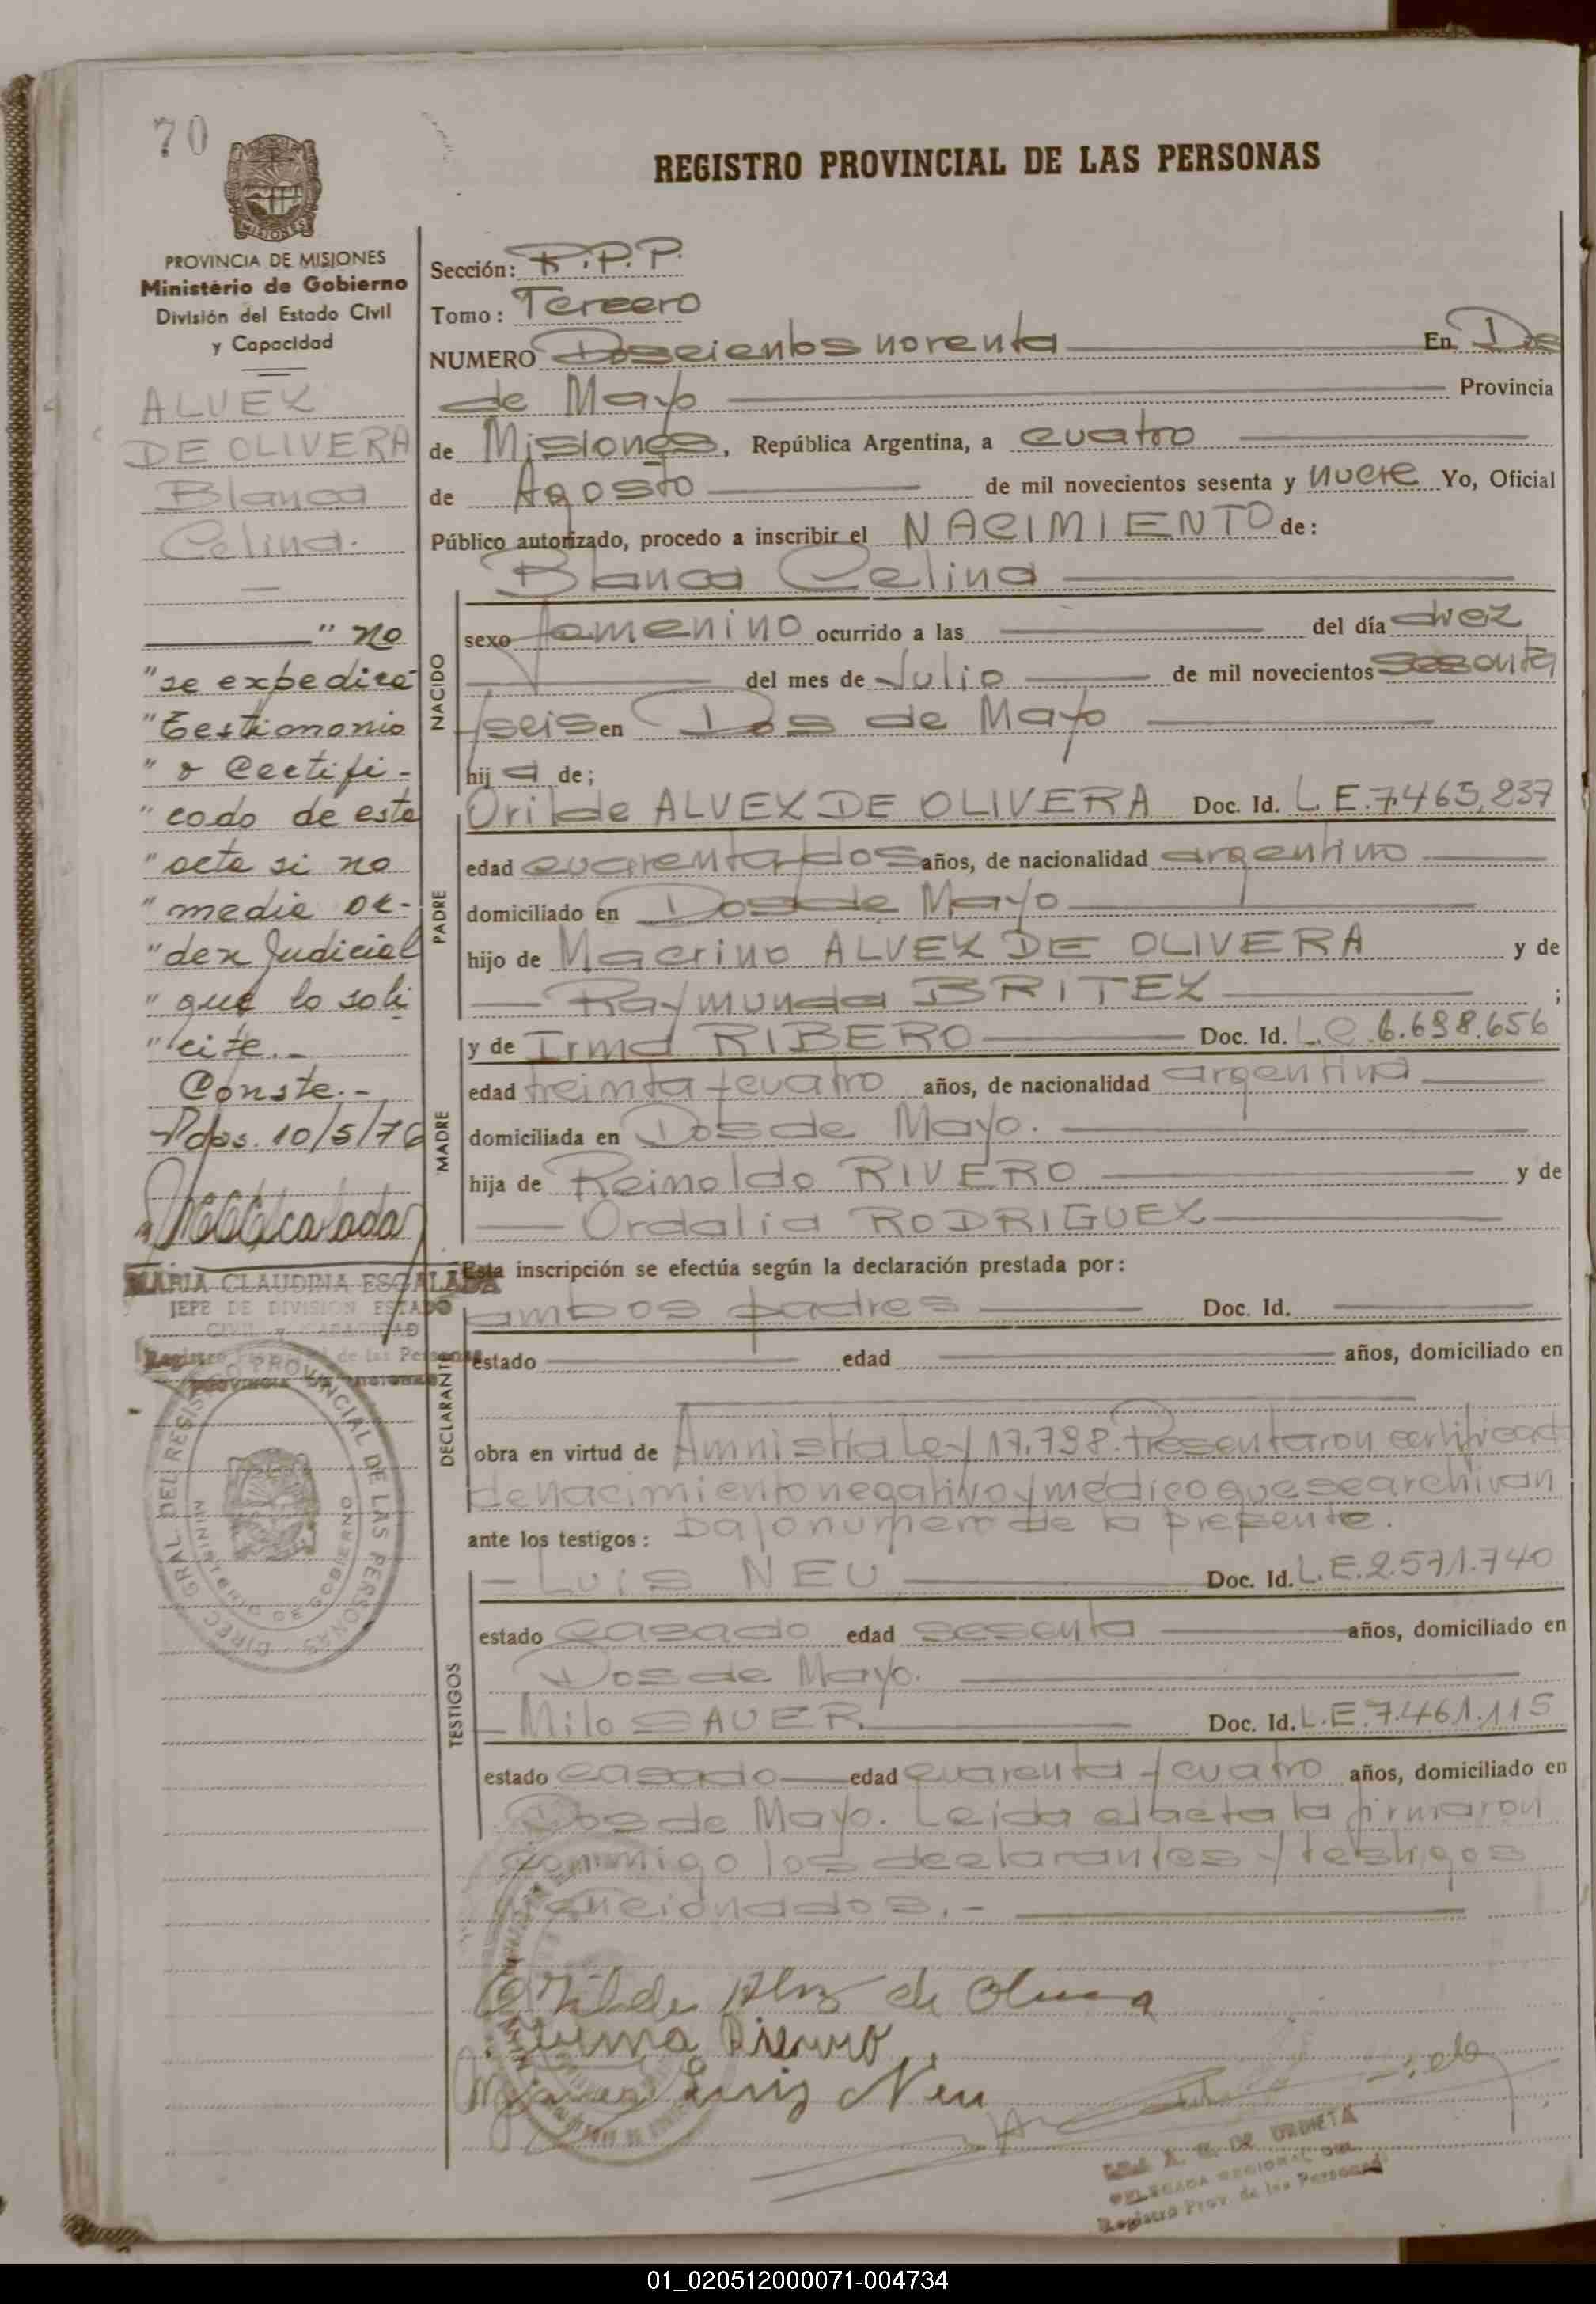 70
REGISTRO PROVINCIAL DE LAS PERSONAS
MISIONES
PROVINCIA DE MISIONES
Ministerio de Gobierno
División del Estado Civil
y Capacidad
ALVEZ
DE OLIVERA
Blanca
Celina.
" no
"se expedirá
"Testimonio
" o Certifi-
"cado de esta
"acta si no
"media or-
"den Judicial
"que lo soli
"cite.-
Conste.-
Pdas. 10/5/76
MARIA CLAUDINA ESCALADA
JEFE DE DIVISION ESTADO
CIVIL y CAPACIDAD
Registro Provincial de las Personas
PROVINCIA DE MISIONES
DIREC. GRAL DEL REGISTRO PROVINCIAL DE LAS PERSONAS
MINISTERIO DE GOBIERNO
Sección: R.P.P.
Tomo: Tercero
NUMERO Doscientos noventa En Dos
de Mayo Provincia
de Misiones, República Argentina, a cuatro
de Agosto de mil novecientos sesenta y nueve Yo, Oficial
Público autorizado, procedo a inscribir el NACIMIENTO de:
Blanca Celina
NACIDO
sexo femenino ocurrido a las del día diez
del mes de Julio de mil novecientos sesenta
y seis en Dos de Mayo
hij a de;
PADRE
Orilde ALVEZ DE OLIVERA Doc. Id. L.E.7.465.237
edad cuarenta y dos años, de nacionalidad argentino
domiciliado en Dos de Mayo
hijo de Macrino ALVEZ DE OLIVERA y de
Raymunda BRITEZ ;
MADRE
y de Irma RIBERO Doc. Id. L.C. 6.698.656
edad treinta y cuatro años, de nacionalidad argentina
domiciliada en Dos de Mayo.
hija de Reinoldo RIVERO y de
Ordalia RODRIGUEZ
DECLARANTE
Esta inscripción se efectúa según la declaración prestada por:
ambos padres Doc. Id.
estado edad años, domiciliado en
obra en virtud de Amnistia Ley 17.798. Presentaron certificado
de nacimiento negativo y médico que se archivan
ante los testigos: bajo numero de la presente.
TESTIGOS
Luis NEU Doc. Id. L.E.2.571.740
estado casado edad sesenta años, domiciliado en
Dos de Mayo.
Milo SAUER Doc. Id. L.E.7.461.115
estado casado edad cuarenta y cuatro años, domiciliado en
Dos de Mayo. Leida el acta la firmaron
conmigo los declarantes y testigos
mencionados.-
Orilde Alvz de Olivera
Irma Riverro
Luis Neu
DE URDIETA
DELEGADA REGIONAL
Registro Prov. de las Personas
01_020512000071-004734